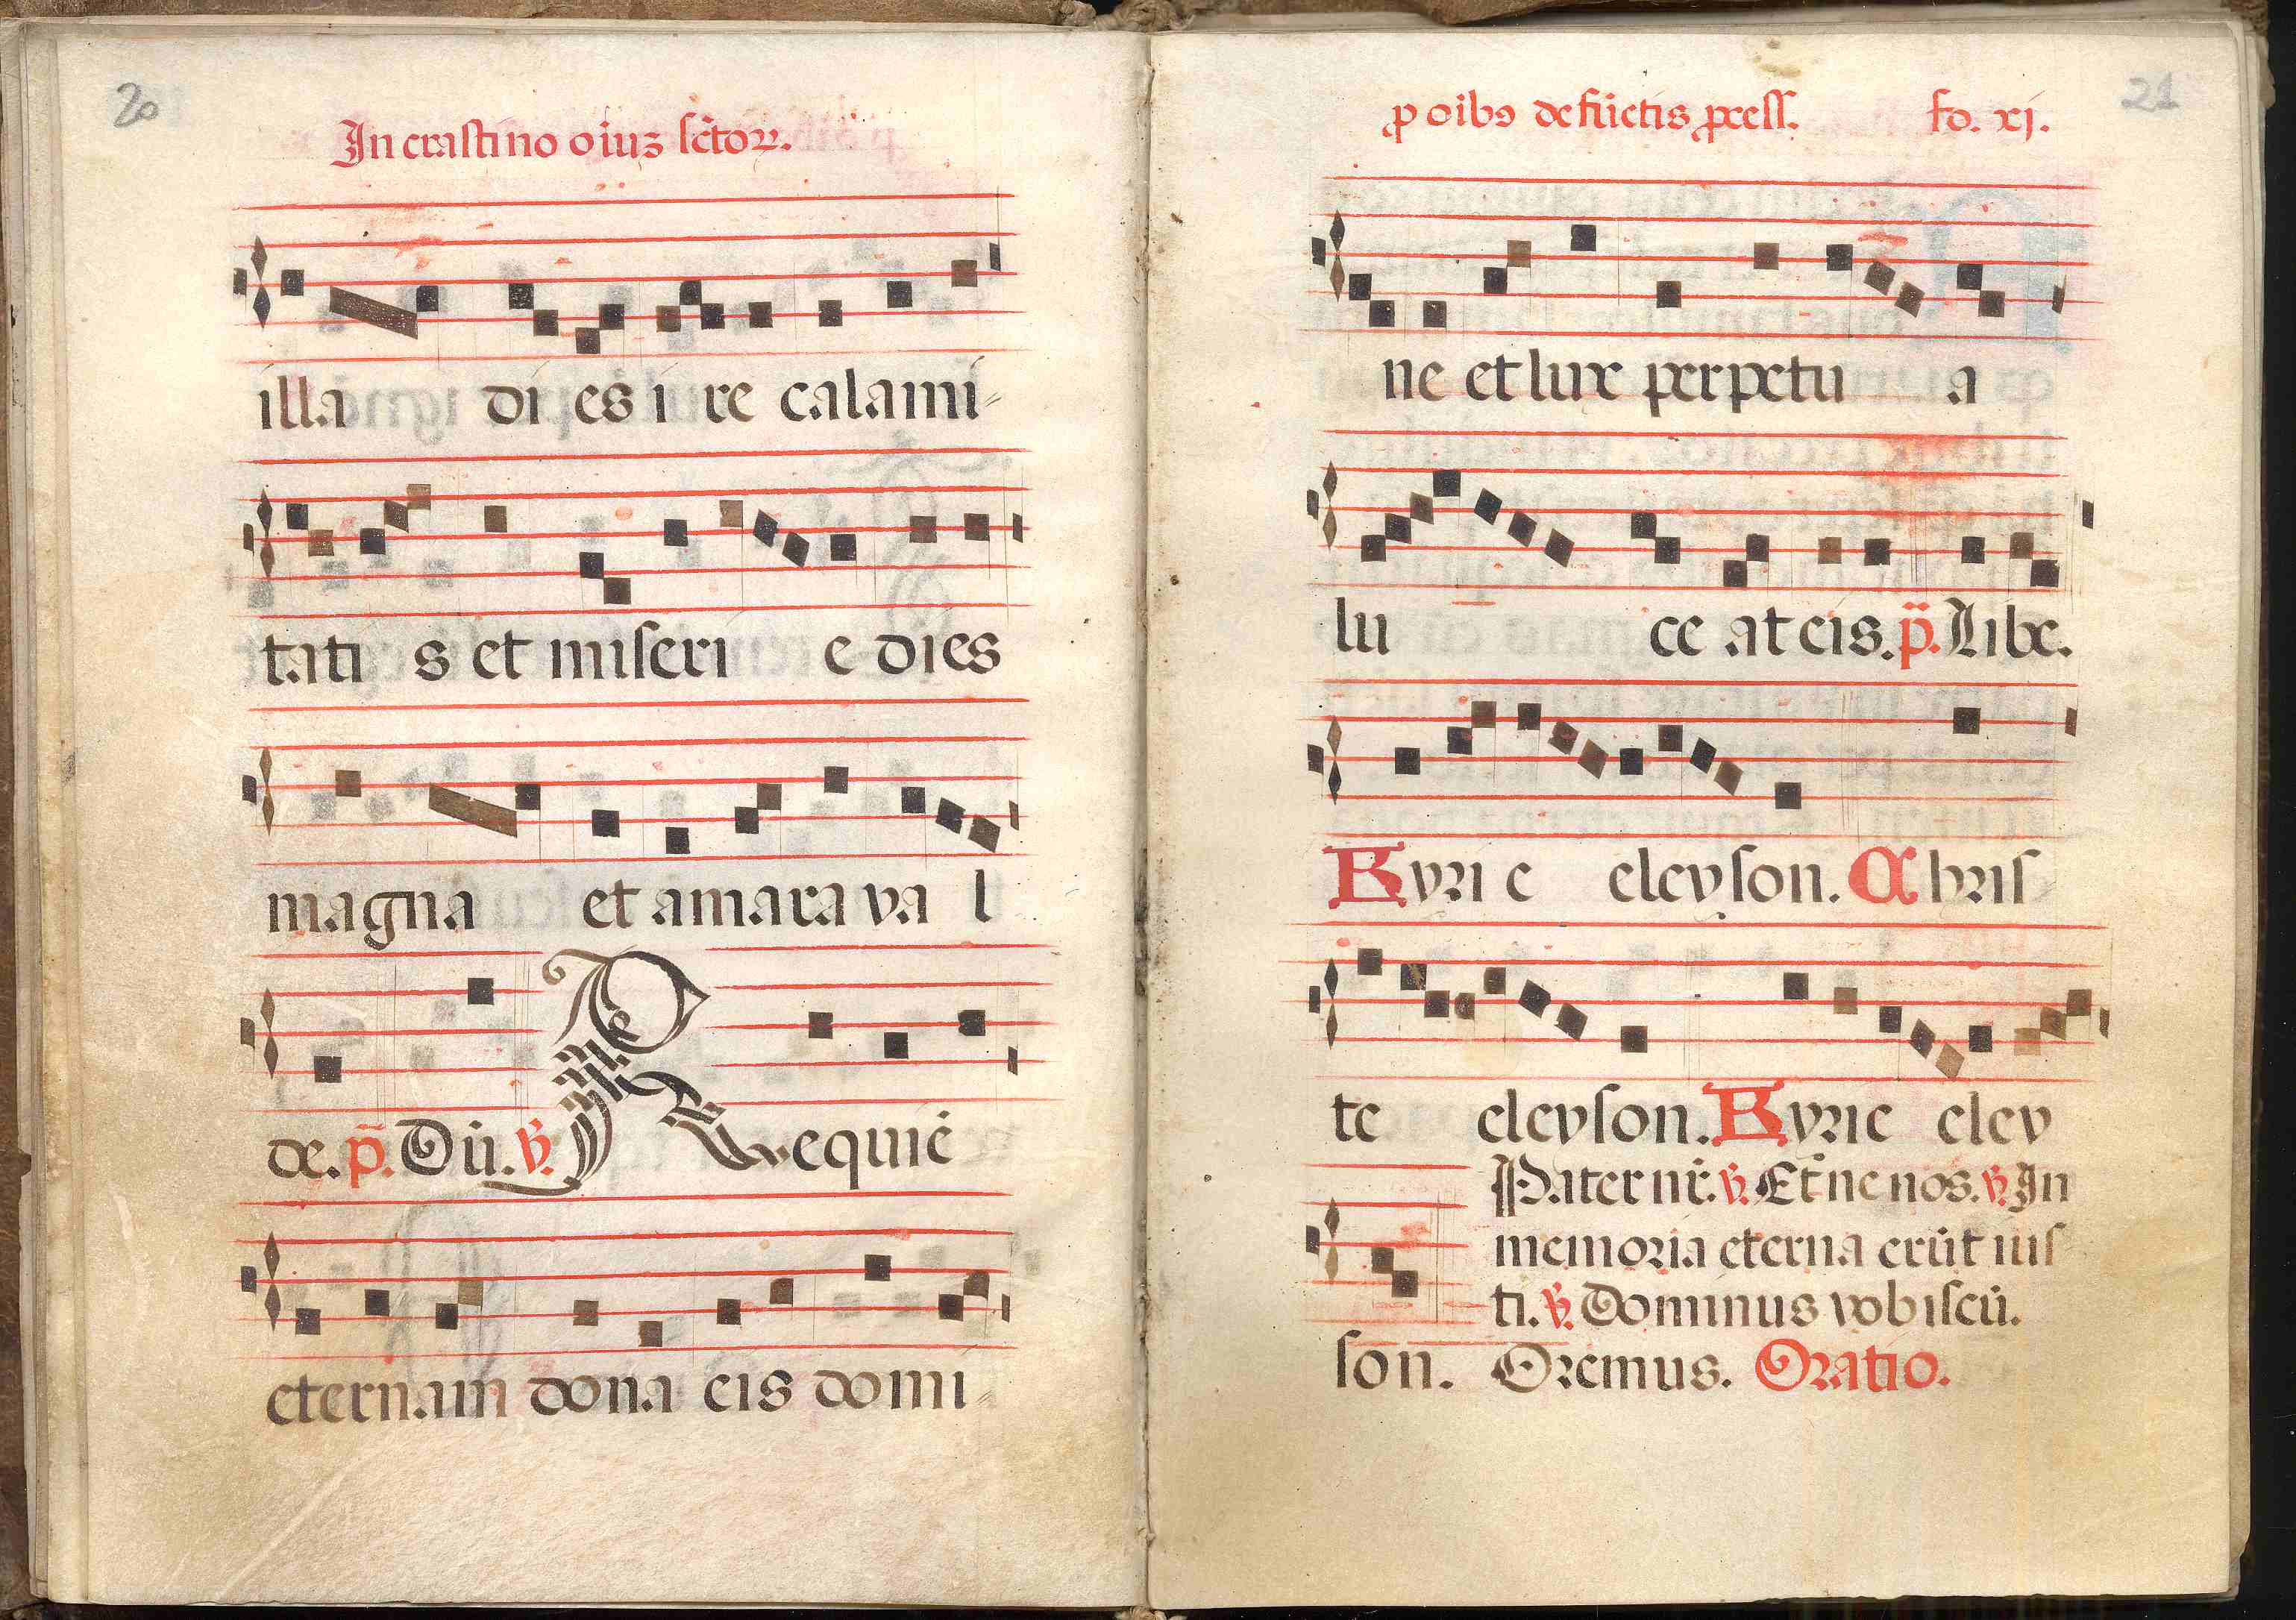 20
In crastino oiuz sctoꝝ.
illa di es i re calami=
tati s et miseri e dies
magna et amara va l
de. p̄. Dū. ꝟ. Requiē
eternam dona eis domi=
21
ꝓ oibꝯ defūctis ꝓcess. fo. xj.
ne et lux perpetu a
lu ce at eis. p̄. Libe.
Kyri e eleyson. Chris
te eleyson. Kyrie eley
Pater nr̄. ꝟ. Et ne nos. ꝟ. In
memoria eterna erūt ius
ti. ꝟ. Dominus vobiscū.
son. Oremus. Oratio.